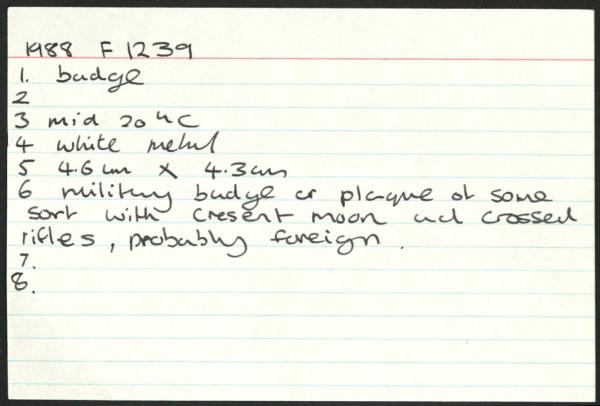 1988 F 1239
1. badge
2
3 mid 20thC
4 white metal
5 4.6cm x 4.3cm
6 military badge or plaque of some
sort with cresent moon and crossed
rifles, probably foreign.
7.
8.